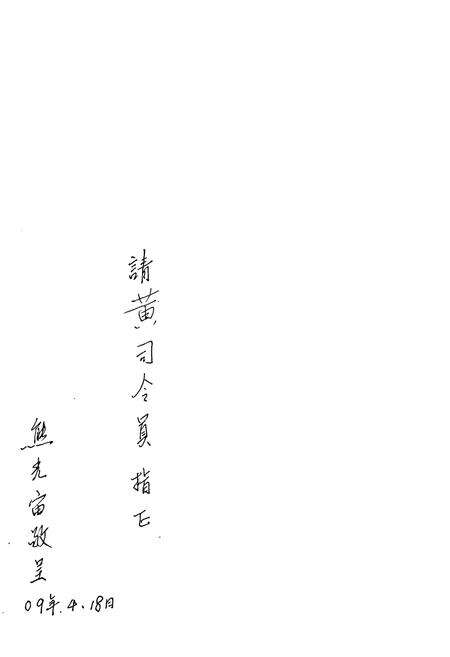 請黄司令員指正
熊光宙敬呈
09年.4.18日